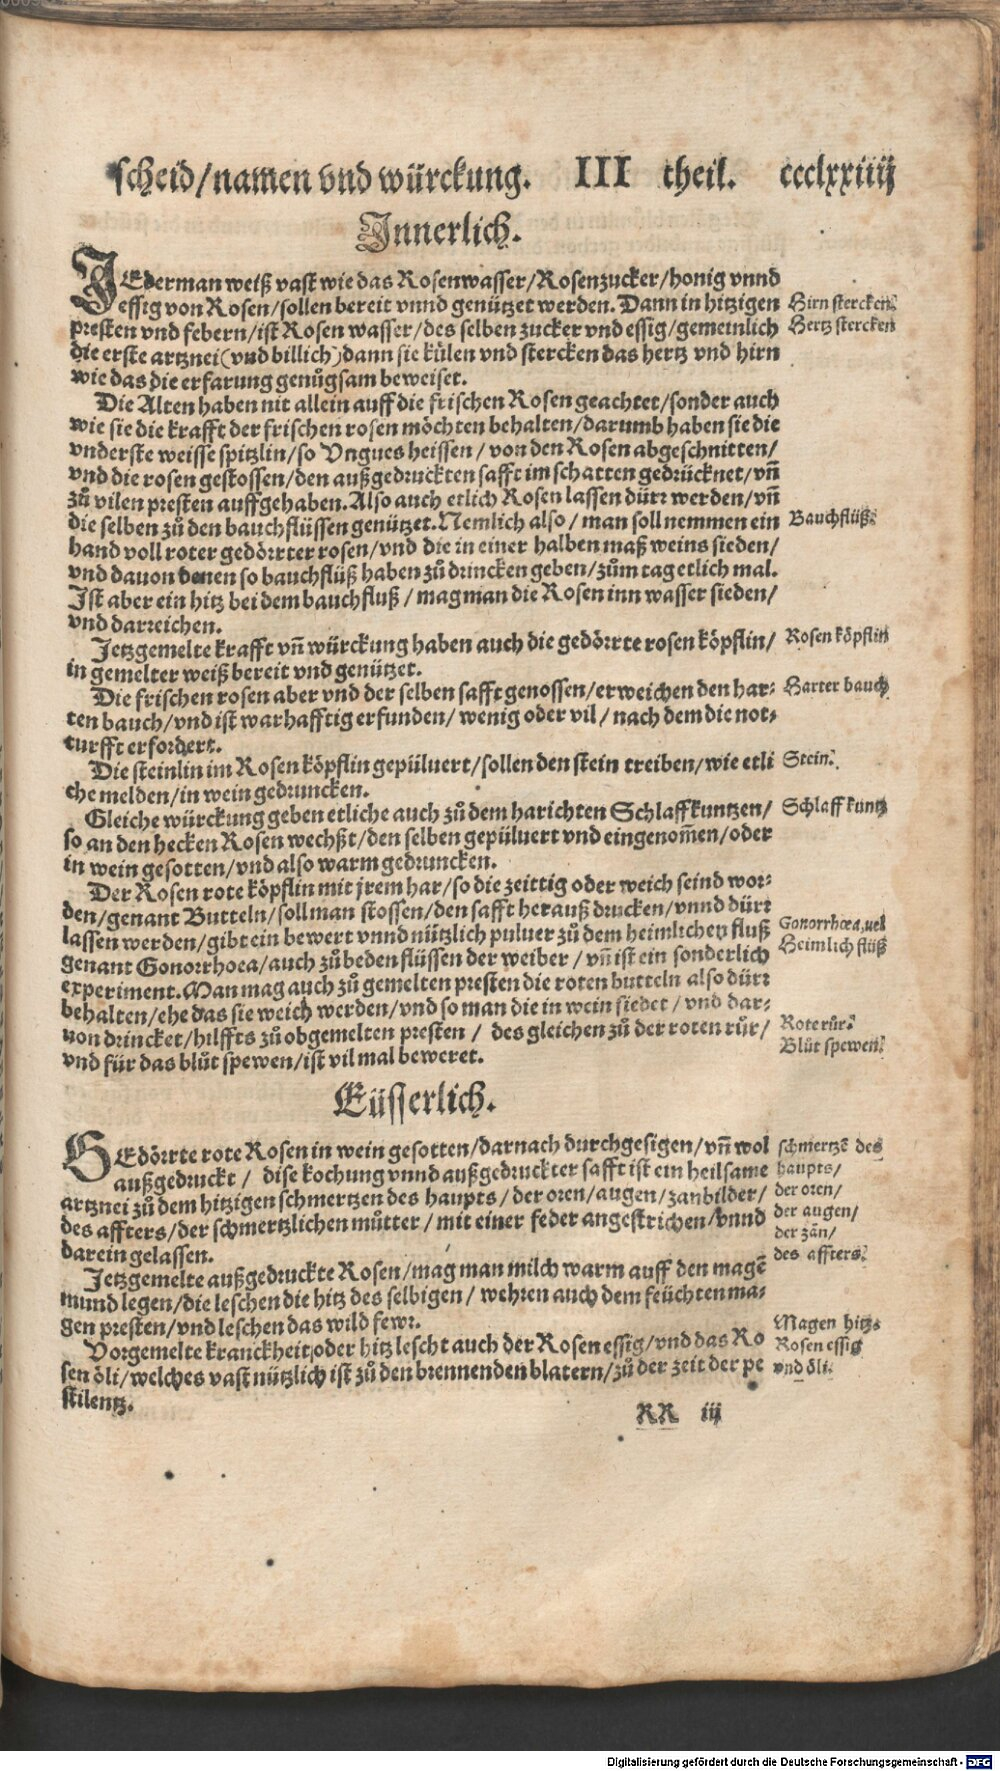 scheid/namen vnd würckung. III theil. ccclxxiiij
Innerlich.
JEderman weiß vast wie das Rosenwasser/Rosenzucker/honig vnnd
essig von Rosen/sollen bereit vnnd genützet werden. Dann in hitzigen
presten vnd febern/ist Rosen wasser/des selben zucker vnd essig/gemeinlich
die erste artznei(vnd billich)dann sie külen vnd stercken das hertz vnd hirn
wie das die erfarung genůgsam beweiset.
Hirn stercken.
Hertz stercken
Die Alten haben nit allein auff die frischen Rosen geachtet/sonder auch
wie sie die krafft der frischen rosen möchten behalten/darumb haben sie die
vnderste weisse spitzlin/so Vngues heissen/von den Rosen abgeschnitten/
vnd die rosen gestossen/den außgedruckten safft im schatten gedrücknet/vñ
zů vilen presten auffgehaben. Also auch etlich Rosen lassen dürr werden/vñ
die selben zů den bauchflüssen genützet. Nemlich also/man soll nemmen ein
hand voll roter gedörrter rosen/vnd die in einer halben maß weins sieden/
vnd dauon denen so bauchflüß haben zů drincken geben/zům tag etlich mal.
Ist aber ein hitz bei dem bauchfluß/mag man die Rosen inn wasser sieden/
vnd darreichen.
Bauchflüß.
Jetzgemelte krafft vñ würckung haben auch die gedörrte rosen köpflin/
in gemelter weiß bereit vnd genützet.
Rosen köpflin
Die frischen rosen aber vnd der selben safft genossen/erweichen den har-
ten bauch/vnd ist warhafftig erfunden/wenig oder vil/nach dem die not-
turfft erfordert.
Harter bauch
Die steinlin im Rosen köpflin gepüluert/sollen den stein treiben/wie etli
che melden/in wein gedruncken.
Stein.
Gleiche würckung geben etliche auch zů dem harichten Schlaffkuntzen/
so an den hecken Rosen wechßt/den selben gepüluert vnd eingenom̃en/oder
in wein gesotten/vnd also warm gedruncken.
Schlaff kuntz
Der Rosen rote köpflin mit jrem har/so die zeittig oder weich seind wor-
den/genant Butteln/soll man stossen/den safft herauß drucken/vnnd dürr
lassen werden/gibt ein bewert vnnd nützlich puluer zů dem heimlichen fluß
genant Gonorrhoea/auch zů beden flüssen der weiber/vñ ist ein sonderlich
experiment. Man mag auch zů gemelten presten die roten butteln also dürr
behalten/ehe das sie weich werden/vnd so man die in wein siedet/vnd dar-
uon drincket/hilffts zů obgemelten presten/des gleichen zů der roten růr/
vnd für das blůt spewen/ist vil mal beweret.
Gonorrhœa, uel
Heimlich flüß
Rote růr.
Blůt spewen.
Eüsserlich.
GEdörrte rote Rosen in wein gesotten/darnach durchgesigen/vñ wol
außgedruckt/dise kochung vnnd außgedruckter safft ist ein heilsame
artznei zů dem hitzigen schmertzen des haupts/der oren/augen/zanbilder/
des affters/der schmertzlichen můtter/mit einer feder angestrichen/vnnd
darein gelassen.
schmertzẽ des
haupts/
der oren/
der augen/
der zän/
des affters.
Jetzgemelte außgedruckte Rosen/mag man milch warm auff den magẽ
mund legen/die leschen die hitz des selbigen/wehren auch dem feüchten ma-
gen presten/vnd leschen das wild fewr.
Magen hitz.
Vorgemelte kranckheit/oder hitz lescht auch der Rosen essig/vnd das Ro
sen öli/welches vast nützlich ist zů den brennenden blatern/zů der zeit der pe
stilentz.
Rosen essig
vnd öli.
RR iij
Digitalisierung gefördert durch die Deutsche Forschungsgemeinschaft - DFG